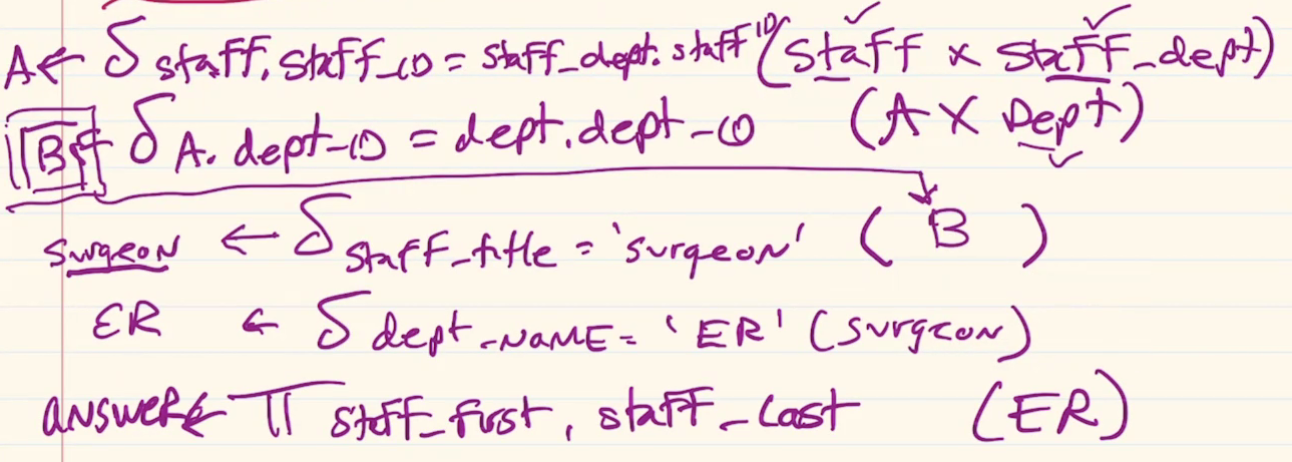 A← δ staff.staff_ID = staff_dept.staff ID (Staff x Staff_dept)
B← δ A.dept-ID = dept.dept-ID (A X Dept)
surgeon ← δ staff_title = 'surgeon' ( B )
ER ← δ dept_NAME = 'ER' (surgeon)
answer← π staff_first, staff_last (ER)